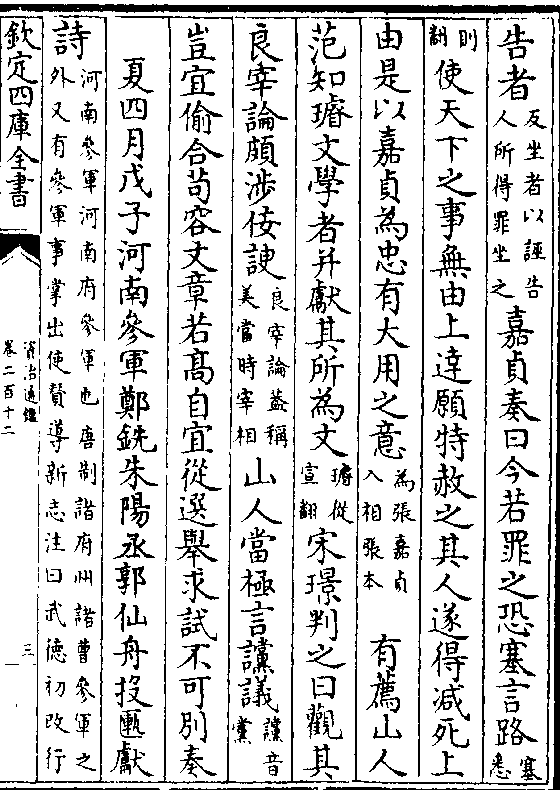 告者反坐者以誣告人所得罪坐之嘉貞奏曰今若罪之恐塞言路塞悉
則翻使天下之事無由上達願特赦之其人遂得減死上
由是以嘉貞為忠有大用之意為張嘉貞入相張本有薦山人
范知璿文學者并獻其所為文璿從宣翻宋璟判之曰觀其
良宰論頗涉佞諛良宰論蓋稱美當時宰相山人當極言讜議讜音黨
豈宜偷合苟容文章若高自宜從選舉求試不可別奏
夏四月戊子河南參軍鄭銑朱陽丞郭仙舟投匭獻
詩河南參軍河南府參軍也唐制諸府州諸曹參軍之外又有參軍事掌出使贊導新志注曰武德初改行
欽定四庫全書
資治通鑑
卷二百十二
三